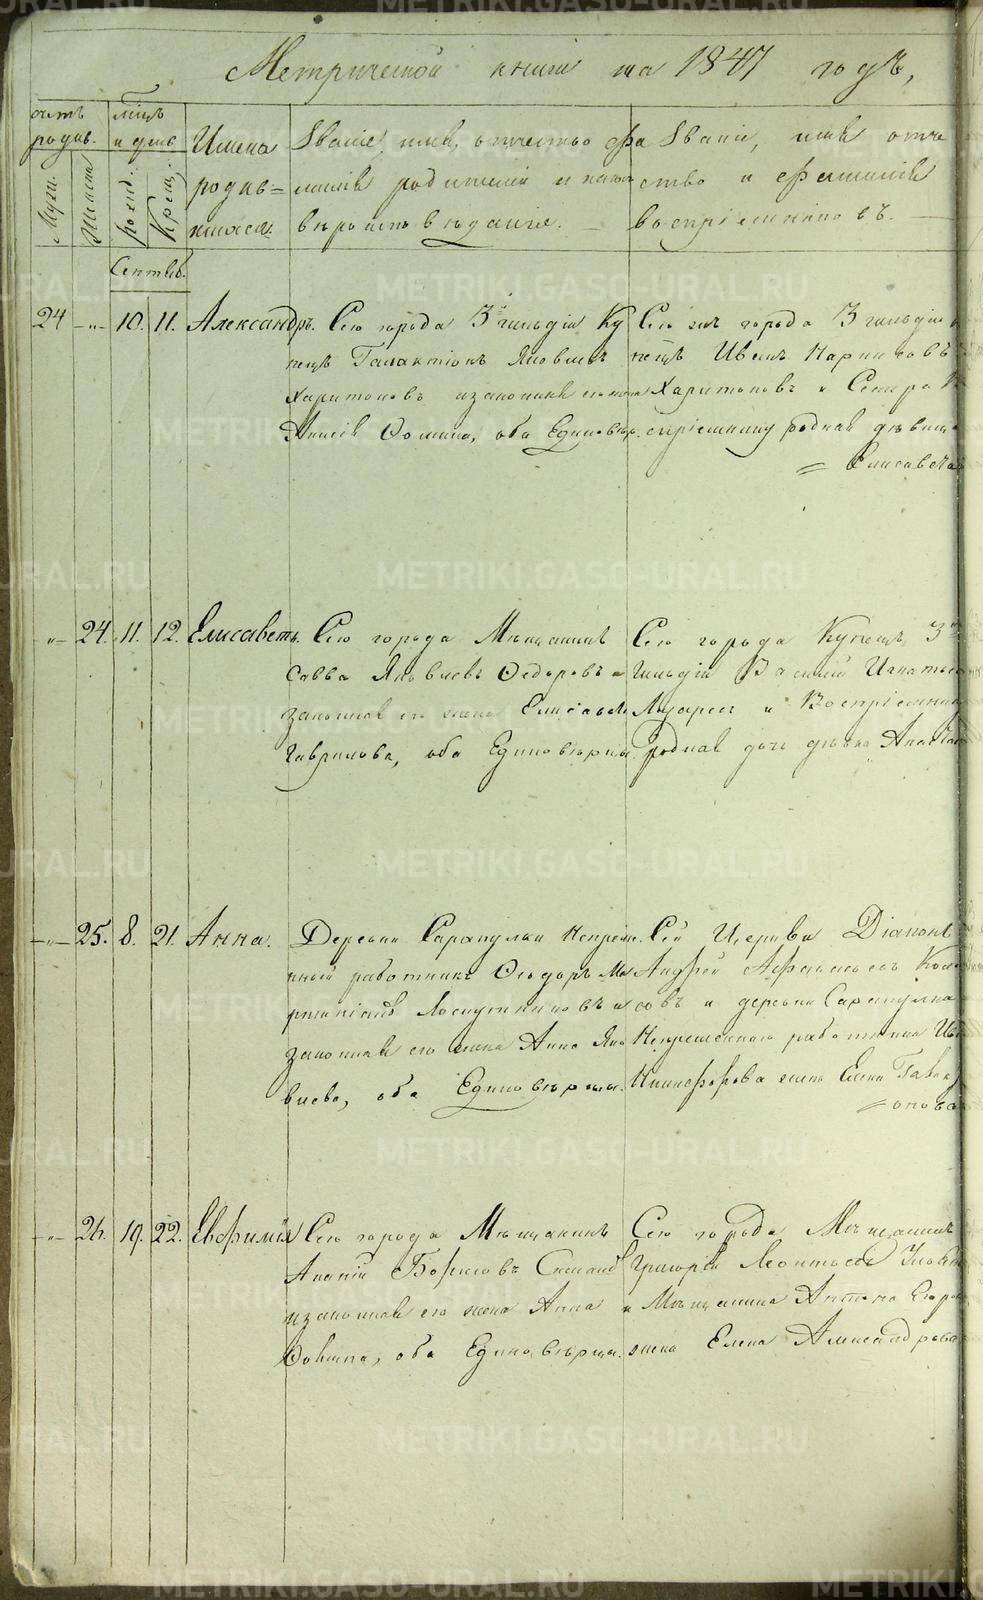 Метрической книги на 1847 годъ,
счетъ родив.
Муж.
Женск.
мѣцъ и день
рожд:
Крещ:
Имена родив=шихся.
Званіе, имя, отчество и фамилія родителей и какого вѣроисповѣданія.
Званіе, имя, отчество и фамилія воспріемниковъ.
Сентяб.
24 -"- 10. 11. Александръ.
Сего города 3й гильдіи Ку
пецъ Галактіонъ Яковлевъ
Харитоновъ и законная его жена
Анисія Фомина, оба Единовѣр.
Сего же города 3 гильдіи
пецъ Иванъ Наркисовъ
Харитоновъ и Сестра
спріемнику родная дѣвица
= Елисавета
-"- 24. 11. 12. Елисаветъ.
Сего города Мѣщанинъ
Савва Яковлевъ Федоровъ и
законная его жена Елисавета
Гаврилова, оба Единовѣрцы.
Сего города Купецъ 3й
гильдіи Василій Игнатьев
и Воспріемника
родная дочь дѣвка Анастас
-"- 25. 8. 21. Анна.
Деревни Сарапулки Непрем.
нный работникъ Ѳеодоръ Ма
Лоскутниковъ и
законная его жена Анна Яко
влева, оба Единовѣрцы.
Сей Церкви Діаконъ
Андрей Афанасьевъ
совъ и деревни Сарапулки
Непремѣннаго работника Ив
Никифорова жена Елена Гав
-"- 26. 19. 22. Евфимія
Сего города Мѣщанинъ
Ананій Борисовъ
и законная его жена Анна
оба Единовѣрцы.
Сего города Мѣщанинъ
Григорій Леонтьевъ
и Мѣщанина Антона Егоро
жена Елена Александрова
METRIKI.GASO-URAL.RU